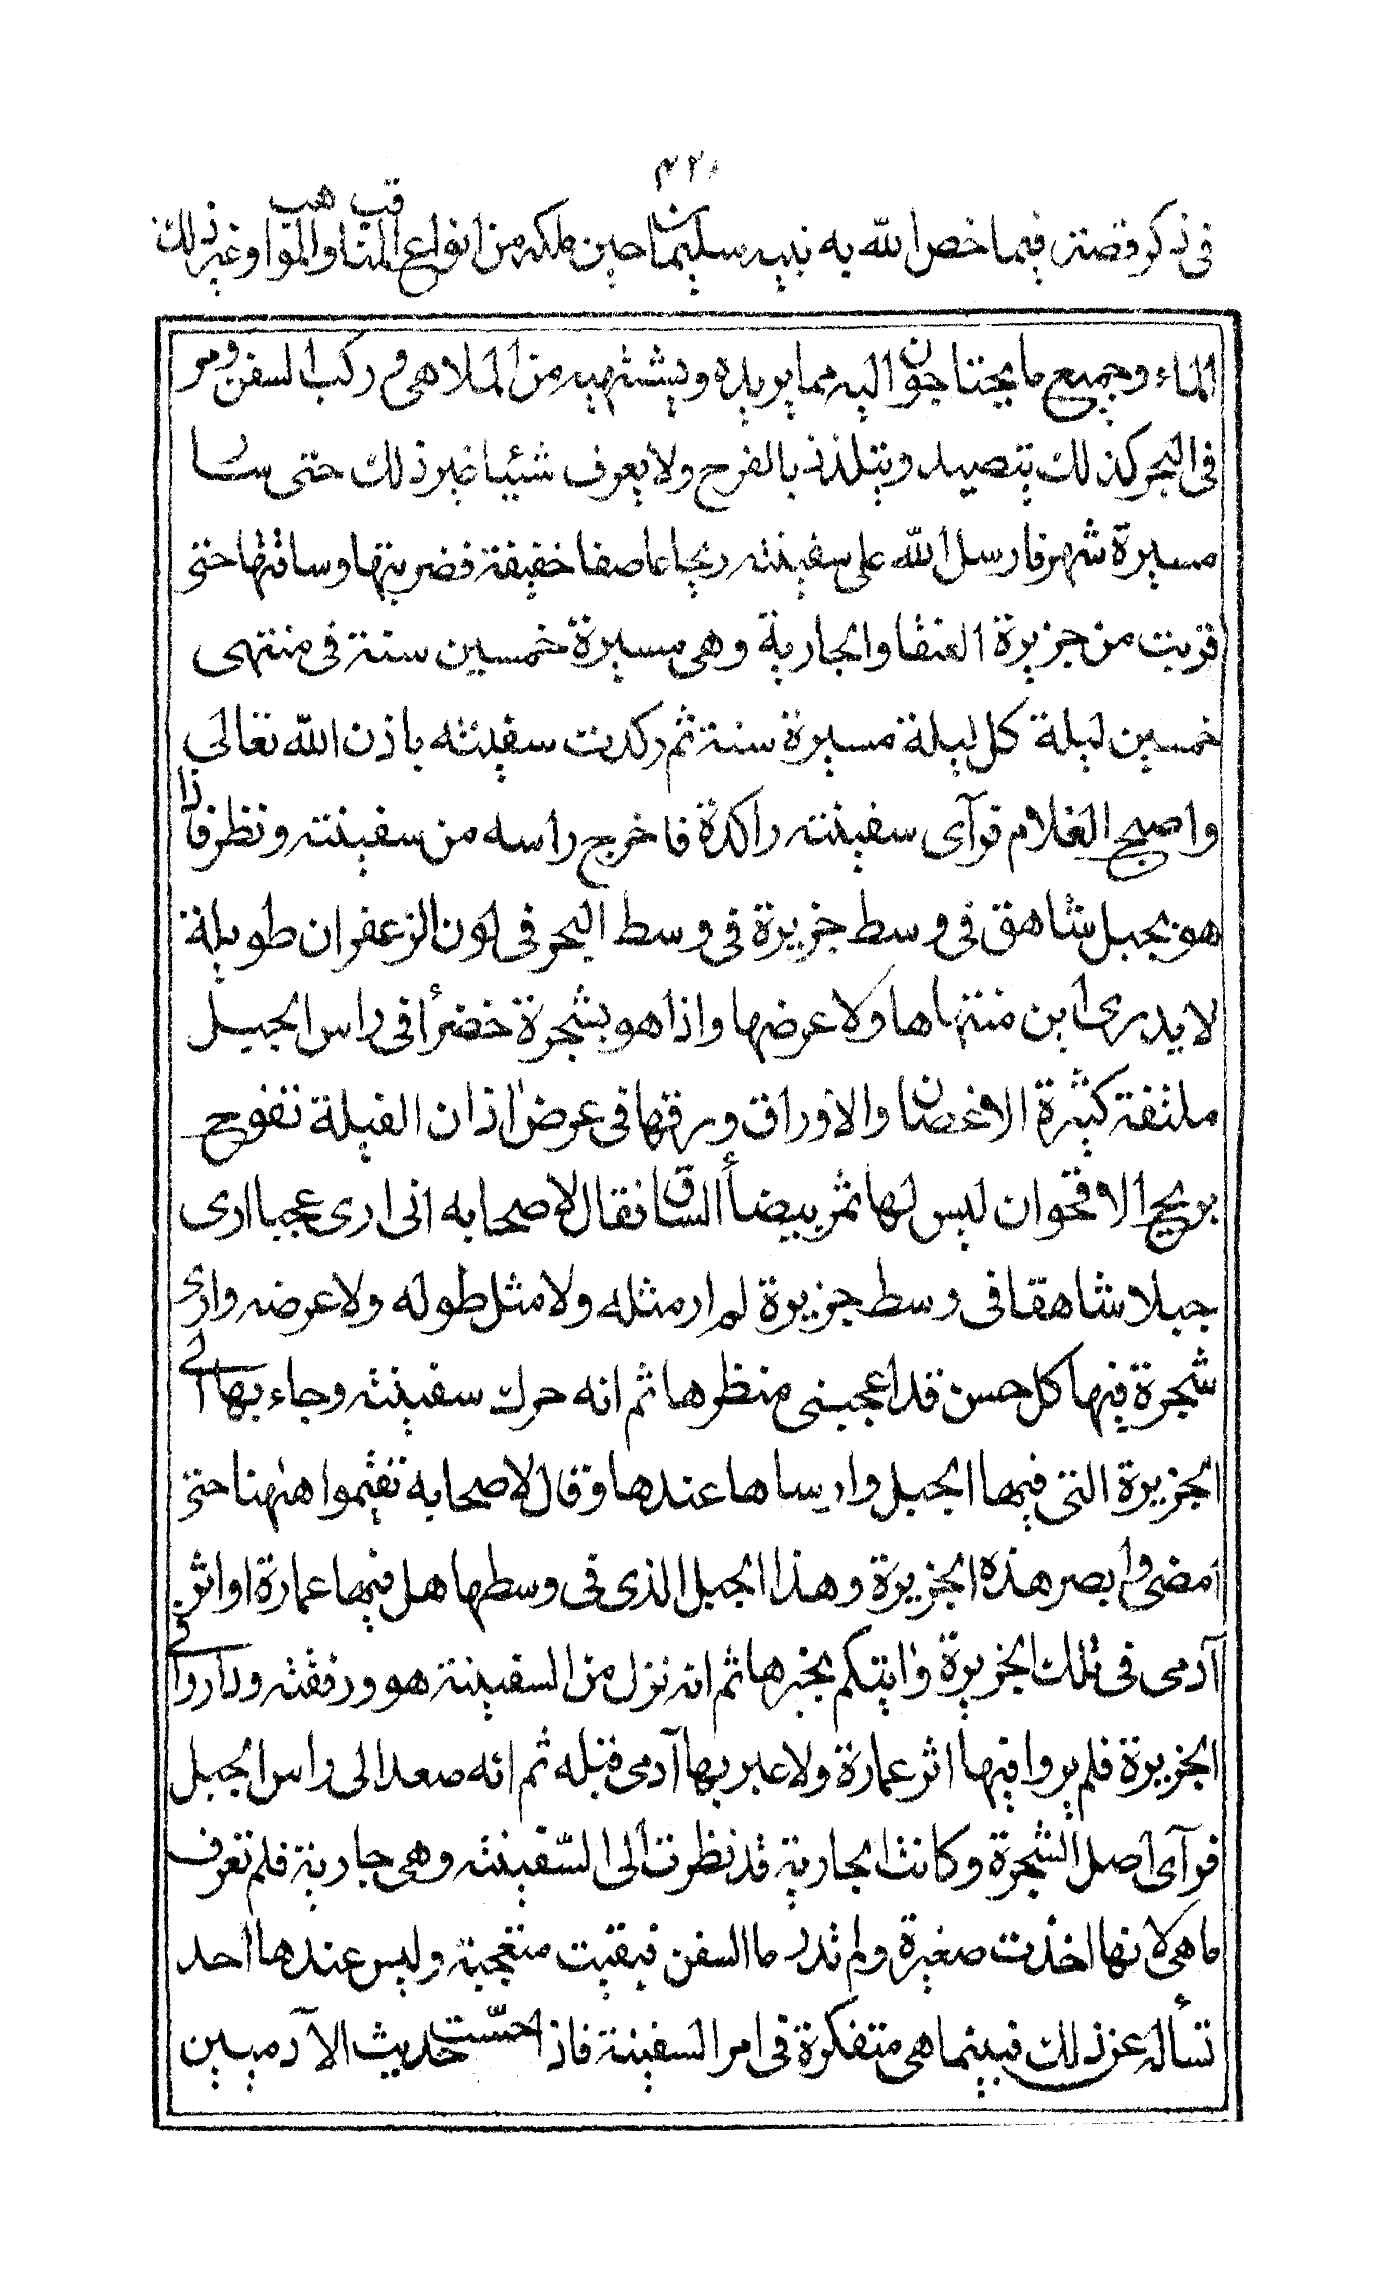 ٤٢١
في ذكر قصته فيما خص الله به نبيه سليمان حين ملكه من انواع المناقب والمواهب وغير ذلك
الماء وجميع ما يحتاجون اليه مما يريده ويشتهيه من الملاهي وركب السفن ومر
في البحر كذلك يتصيد ويتلذذ بالفرح ولا يعرف شيئا غير ذلك حتى سار
مسيرة شهر فارسل الله على سفينته ريحا عاصفا خفيفة فضربتها وساقتها حتى
قربت من جزيرة العنقا والجارية وهي مسيرة خمسين سنة في منتهى
خمسين ليلة كل ليلة مسيرة سنة ثم ركدت سفينته باذن الله تعالى
واصبح الغلام فرآى سفينته راكدة فاخرج راسه من سفينته ونظر فاذا
هو بجبل شاهق في وسط جزيرة في وسط البحر في لون الزعفران طويلة
لا يدرى اين منتهاها ولا عرضها واذا هو بشجرة خضرأ في راس الجبل
ملتفة كثيرة الاغصان والاوراق ورقها في عرض اذان الفيلة تفوح
بريح الاقحوان ليس لها ثمر بيضأ الساق فقال لاصحابه اني ارى عجبا ارى
جبلا شاهقا في وسط جزيرة لم ار مثله ولا مثل طوله ولا عرضه وارى
شجرة فيها كل حسن قد اعجبني منظرها ثم انه حرك سفينته وجاء بها الى
الجزيرة التي فيها الجبل وارساها عندها وقال لاصحابه تقيموا هٰهنا حتى
امضي وابصر هذه الجزيرة وهذا الجبل الذي في وسطها هل فيها عمارة او اثر
آدمي في تلك الجزيرة وايتكم بخبرها ثم انه نزل من السفينة هو ورفقته وداروا في
الجزيرة فلم يروا فيها اثر عمارة ولا عبر بها آدمي قبله ثم انه صعد الى راس الجبل
فرآى اصل الشجرة وكانت الجارية قد نظرت الى السّفينته وهي جارية فلم تعرف
ما هي لانها اخذت صغيرة ولم تدر ما السفن فبقيت متعجبة وليس عندها احد
تسأله عن ذلك فبينما هي متفكرة في امر السفينة فاذ احسّت حديث الآدميين